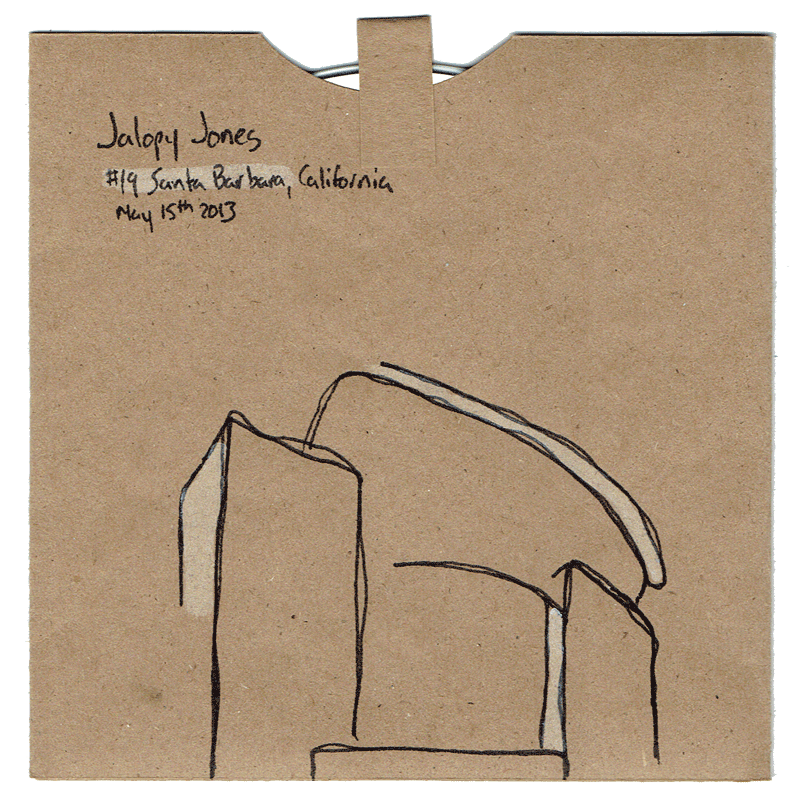 Jalopy Jones
#19 Santa Barbara, California
May 15th 2013